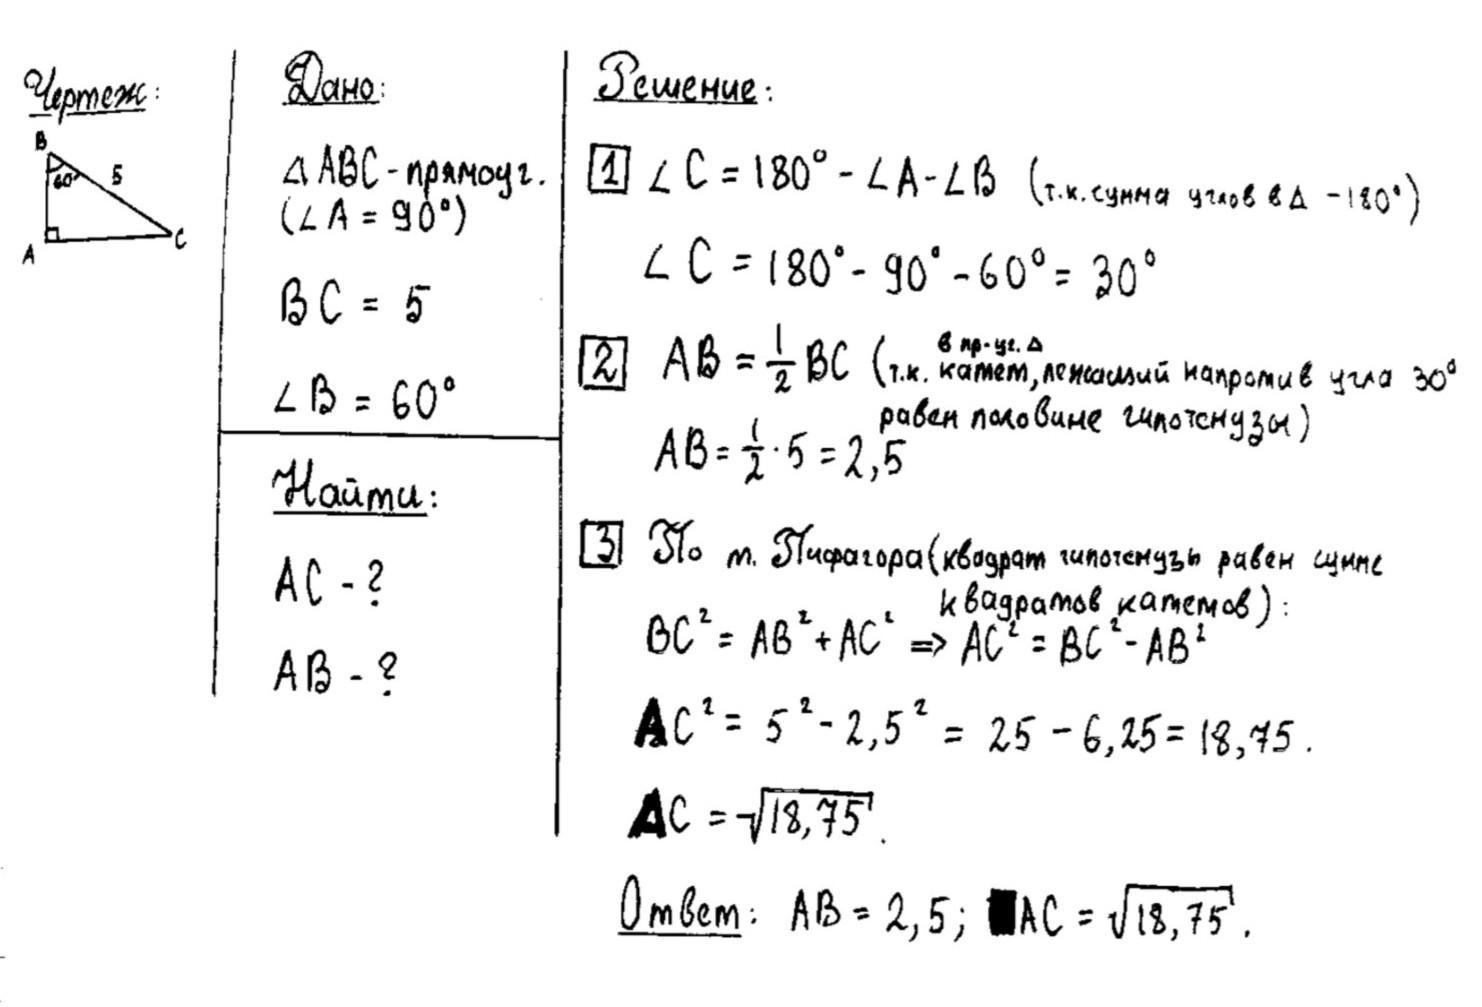 Чертеж:
B
60°
5
A
C
Дано:
△ ABC - прямоуг.
(∠A = 90°)
BC = 5
∠B = 60°
Найти:
AC - ?
AB - ?
Решение:
1 ∠C = 180° - ∠A - ∠B (т.к. сумма углов в △ - 180°)
∠C = 180° - 90° - 60° = 30°
в пр-уг. △
2 AB = 1/2 BC (т.к. катет, лежащий напротив угла 30°
равен половине гипотенузы)
AB = 1/2 · 5 = 2,5
3 По т. Пифагора (квадрат гипотенузы равен сумме
квадратов катетов):
BC² = AB² + AC² => AC² = BC² - AB²
AC² = 5² - 2,5² = 25 - 6,25 = 18,75.
AC = √18,75.
Ответ: AB = 2,5; AC = √18,75.